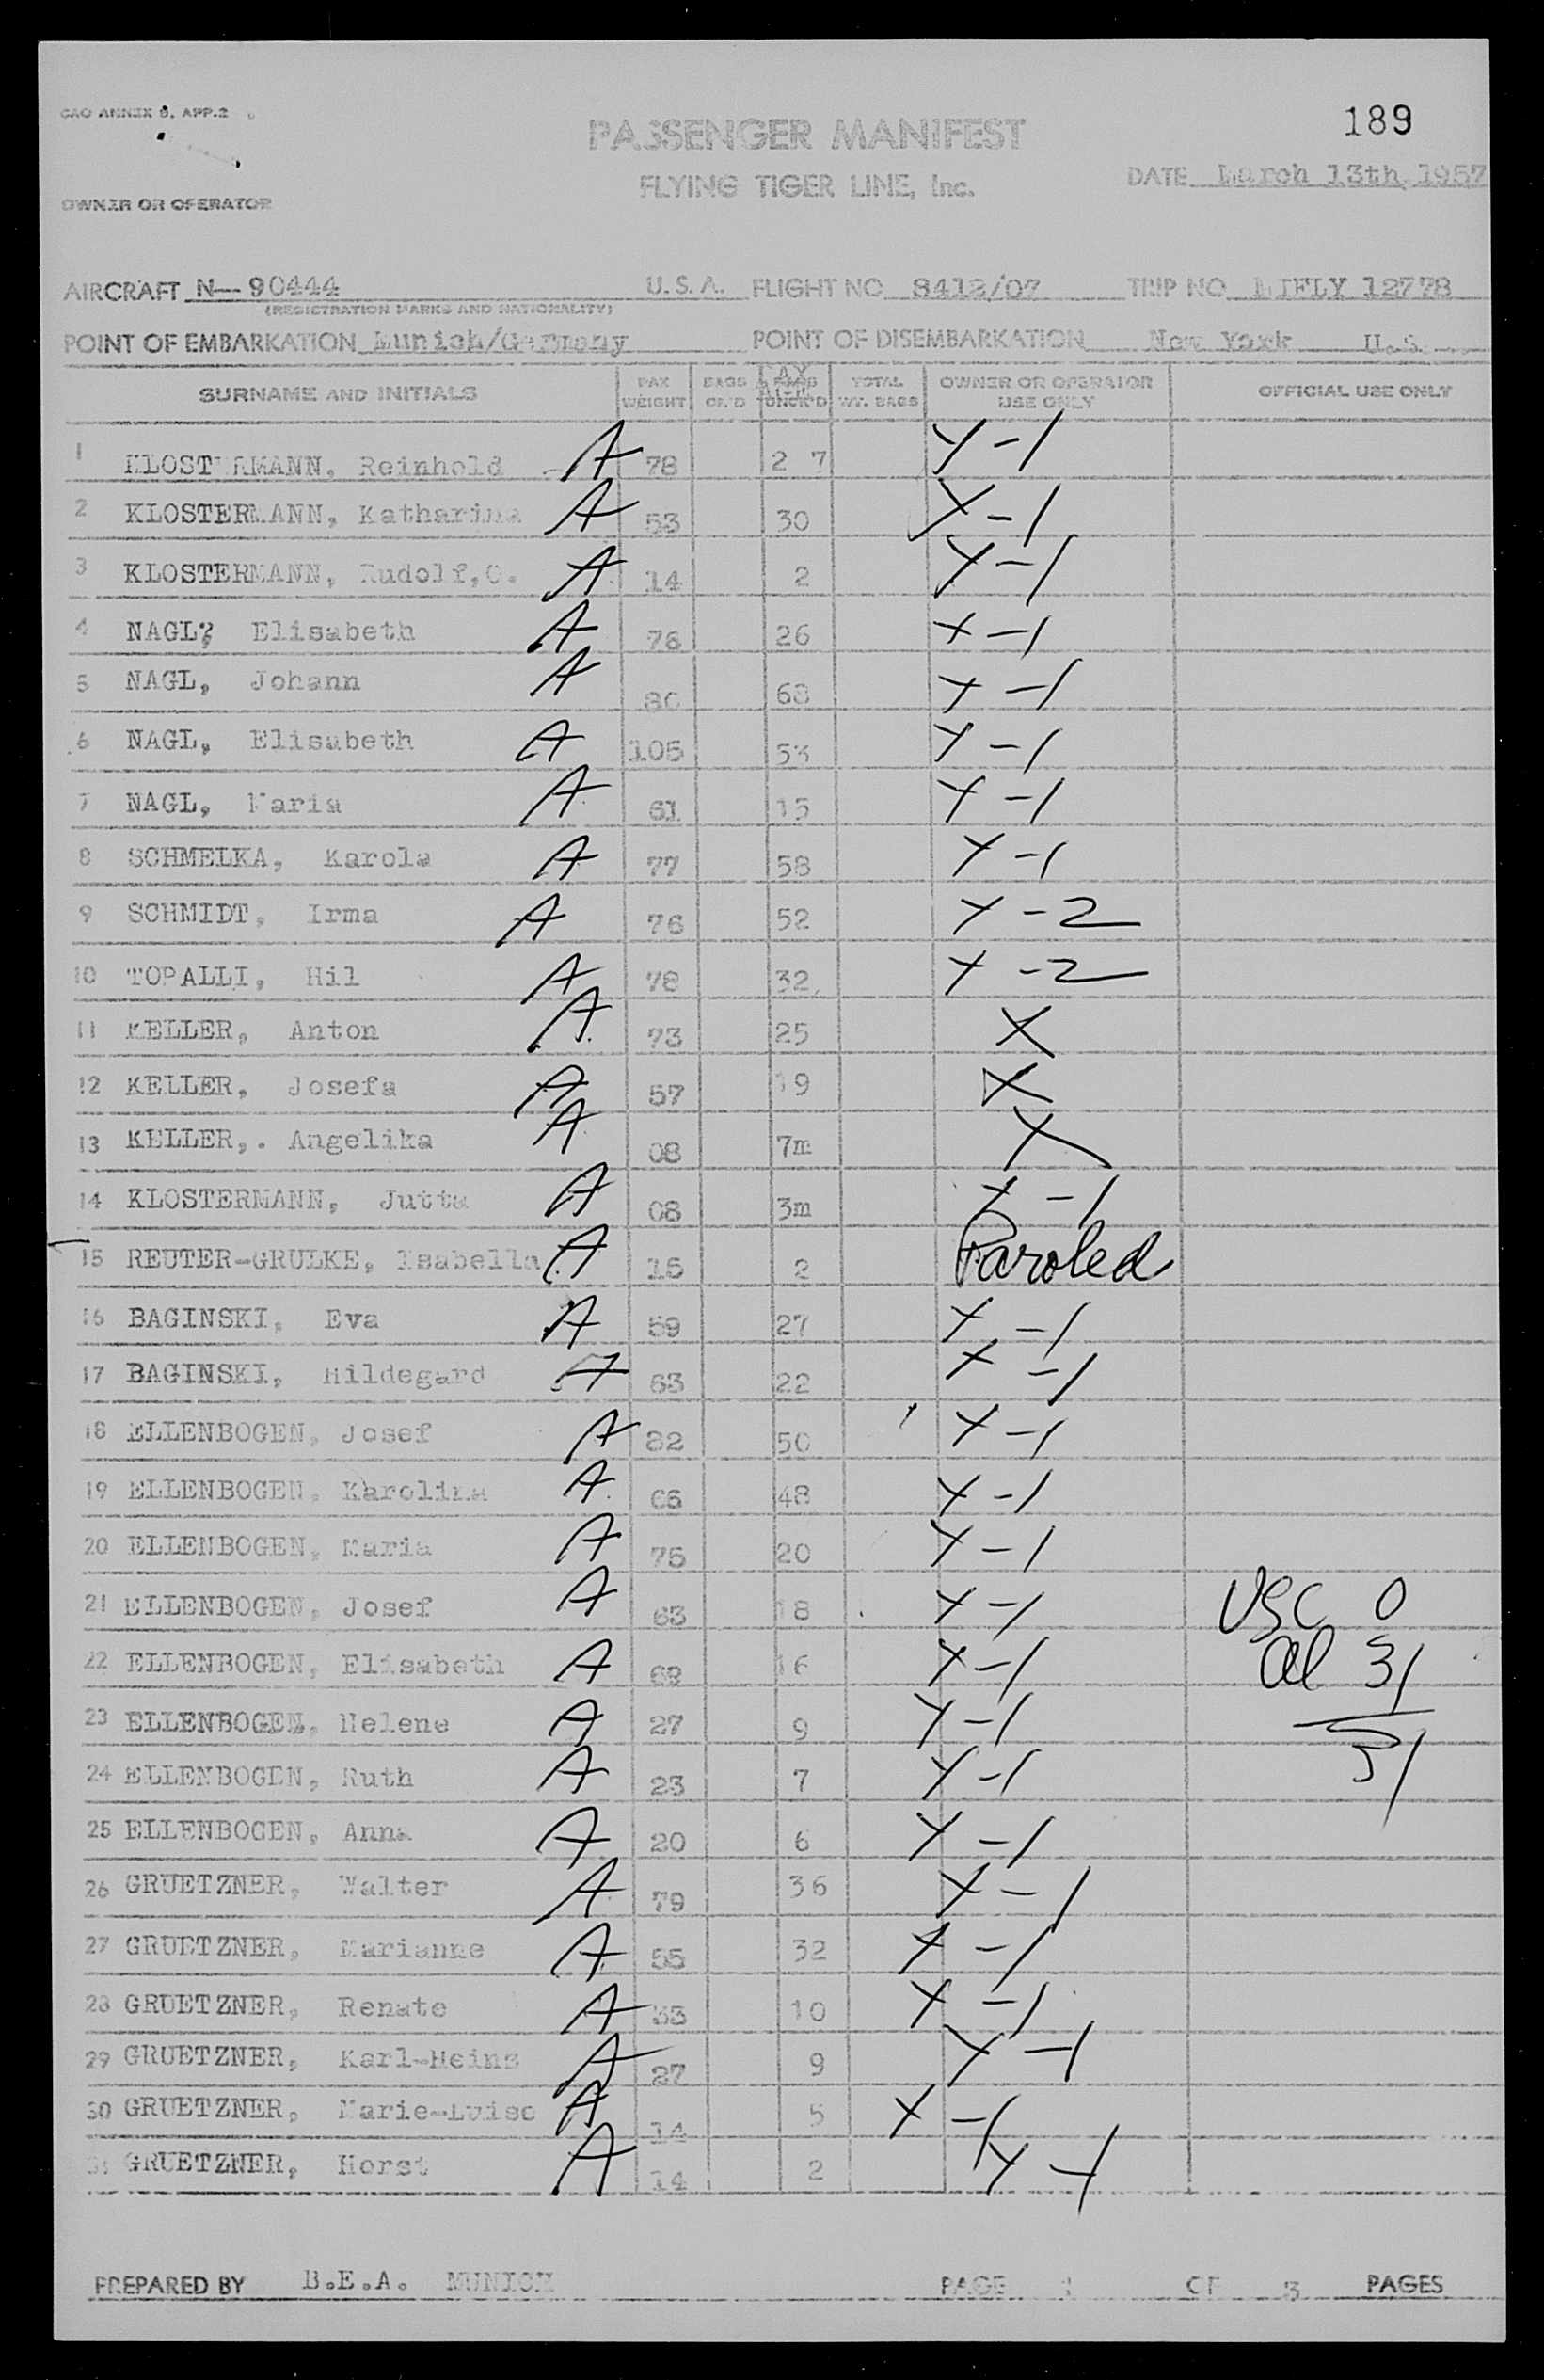 CAO ANNEX 9, APP.2
189
PASSENGER MANIFEST
FLYING TIGER LINE, Inc.
DATE March 13th, 1957
OWNER OR OPERATOR
AIRCRAFT N-90444 U.S.A. FLIGHT NO 8413/07 TRIP NO MIFLY 12778
(REGISTRATION MARKS AND NATIONALITY)
POINT OF EMBARKATION Munich/Germany POINT OF DISEMBARKATION New York U.S.
SURNAME AND INITIALS PAX WEIGHT BAGS CK'D UNCK'D TOTAL WT. BAGS OWNER OR OPERATOR USE ONLY OFFICIAL USE ONLY
1 KLOSTERMANN, Reinhold A 78 27 Y-1
2 KLOSTERMANN, Katharina A 53 30 Y-1
3 KLOSTERMANN, Rudolf,O. A 14 2 Y-1
4 NAGL? Elisabeth A 78 26 Y-1
5 NAGL, Johann A 80 68 Y-1
6 NAGL, Elisabeth A 105 53 Y-1
7 NAGL, Maria A 61 15 Y-1
8 SCHMELKA, Karola A 77 58 Y-1
9 SCHMIDT, Irma A 76 52 Y-2
10 TOPALLI, Hil A 78 32 Y-2
11 KELLER, Anton A 73 25 X
12 KELLER, Josefa A 57 19 X
13 KELLER,. Angelika A 08 7m X
14 KLOSTERMANN, Jutta A 08 3m Y-1
15 REUTER-GRULKE, Isabella A 15 2 Paroled
16 BAGINSKI, Eva A 59 27 Y-1
17 BAGINSKI, Hildegard A 63 22 Y-1
18 ELLENBOGEN, Josef A 82 50 Y-1
19 ELLENBOGEN, Karolina A 65 48 Y-1
20 ELLENBOGEN, Maria A 75 20 Y-1
21 ELLENBOGEN, Josef A 63 18 Y-1 USC 0
22 ELLENBOGEN, Elisabeth A 68 16 Y-1 al 31
23 ELLENBOGEN, Helene A 27 9 Y-1
24 ELLENBOGEN, Ruth A 23 7 Y-1 31
25 ELLENBOGEN, Anna A 20 6 Y-1
26 GRUETZNER, Walter A 79 36 Y-1
27 GRUETZNER, Marianne A 55 32 Y-1
28 GRUETZNER, Renate A 33 10 Y-1
29 GRUETZNER, Karl-Heinz A 27 9 Y-1
30 GRUETZNER, Marie-Luise A 14 5 Y-1
31 GRUETZNER, Horst A 14 2 Y-1
PREPARED BY B.E.A. MUNICH PAGE OF 3 PAGES